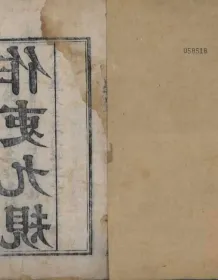 作吏九規